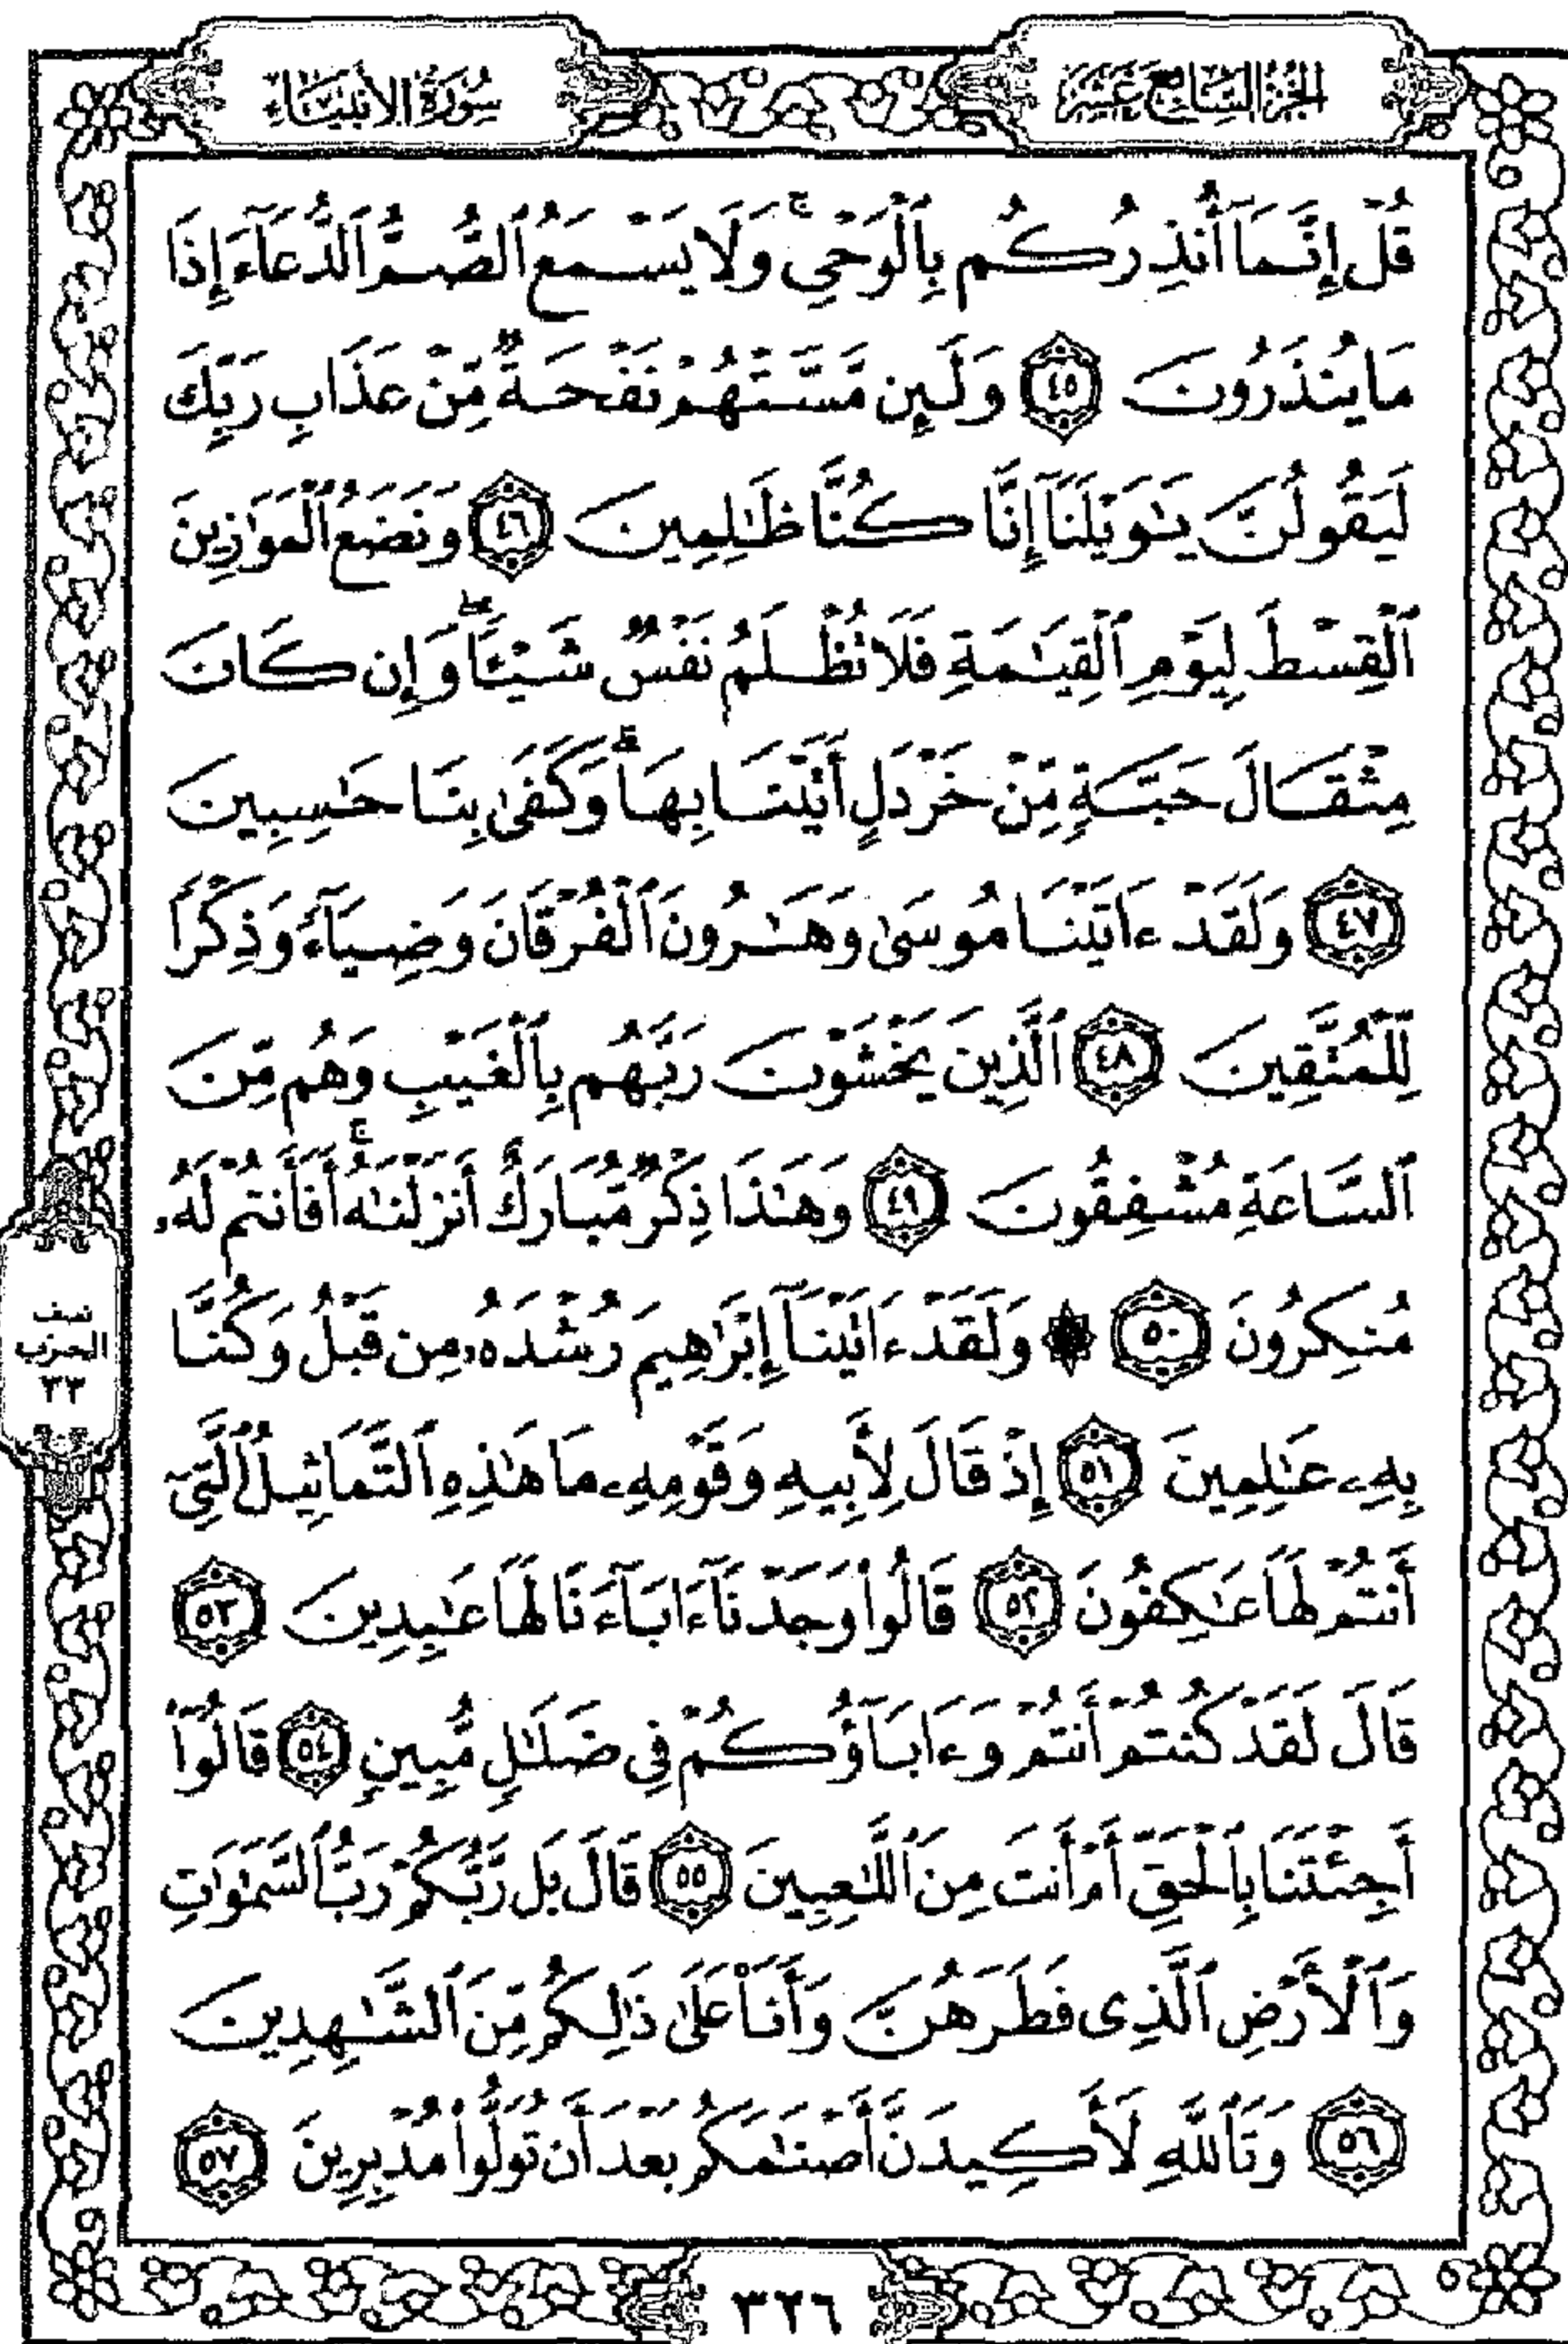 الجزء السابع عشر
سورة الأنبياء
قُلْ إِنَّمَآ أُنذِرُكُم بِٱلْوَحْىِ ۚ وَلَا يَسْمَعُ ٱلصُّمُّ ٱلدُّعَآءَ إِذَا
مَا يُنذَرُونَ ﴿٤٥﴾ وَلَئِن مَّسَّتْهُمْ نَفْحَةٌ مِّنْ عَذَابِ رَبِّكَ
لَيَقُولُنَّ يَٰوَيْلَنَآ إِنَّا كُنَّا ظَٰلِمِينَ ﴿٤٦﴾ وَنَضَعُ ٱلْمَوَٰزِينَ
ٱلْقِسْطَ لِيَوْمِ ٱلْقِيَٰمَةِ فَلَا تُظْلَمُ نَفْسٌ شَيْـًٔا ۖ وَإِن كَانَ
مِثْقَالَ حَبَّةٍ مِّنْ خَرْدَلٍ أَتَيْنَا بِهَا ۗ وَكَفَىٰ بِنَا حَٰسِبِينَ
﴿٤٧﴾ وَلَقَدْ ءَاتَيْنَا مُوسَىٰ وَهَٰرُونَ ٱلْفُرْقَانَ وَضِيَآءً وَذِكْرًا
لِّلْمُتَّقِينَ ﴿٤٨﴾ ٱلَّذِينَ يَخْشَوْنَ رَبَّهُم بِٱلْغَيْبِ وَهُم مِّنَ
ٱلسَّاعَةِ مُشْفِقُونَ ﴿٤٩﴾ وَهَٰذَا ذِكْرٌ مُّبَارَكٌ أَنزَلْنَٰهُ ۚ أَفَأَنتُمْ لَهُۥ
مُنكِرُونَ ﴿٥٠﴾ ۞ وَلَقَدْ ءَاتَيْنَآ إِبْرَٰهِيمَ رُشْدَهُۥ مِن قَبْلُ وَكُنَّا
بِهِۦ عَٰلِمِينَ ﴿٥١﴾ إِذْ قَالَ لِأَبِيهِ وَقَوْمِهِۦ مَا هَٰذِهِ ٱلتَّمَاثِيلُ ٱلَّتِىٓ
أَنتُمْ لَهَا عَٰكِفُونَ ﴿٥٢﴾ قَالُوا۟ وَجَدْنَآ ءَابَآءَنَا لَهَا عَٰبِدِينَ ﴿٥٣﴾
قَالَ لَقَدْ كُنتُمْ أَنتُمْ وَءَابَآؤُكُمْ فِى ضَلَٰلٍ مُّبِينٍ ﴿٥٤﴾ قَالُوٓا۟
أَجِئْتَنَا بِٱلْحَقِّ أَمْ أَنتَ مِنَ ٱللَّٰعِبِينَ ﴿٥٥﴾ قَالَ بَل رَّبُّكُمْ رَبُّ ٱلسَّمَٰوَٰتِ
وَٱلْأَرْضِ ٱلَّذِى فَطَرَهُنَّ وَأَنَا۠ عَلَىٰ ذَٰلِكُم مِّنَ ٱلشَّٰهِدِينَ
﴿٥٦﴾ وَتَٱللَّهِ لَأَكِيدَنَّ أَصْنَٰمَكُم بَعْدَ أَن تُوَلُّوا۟ مُدْبِرِينَ ﴿٥٧﴾
نصف
الحزب
٣٣
٣٢٦